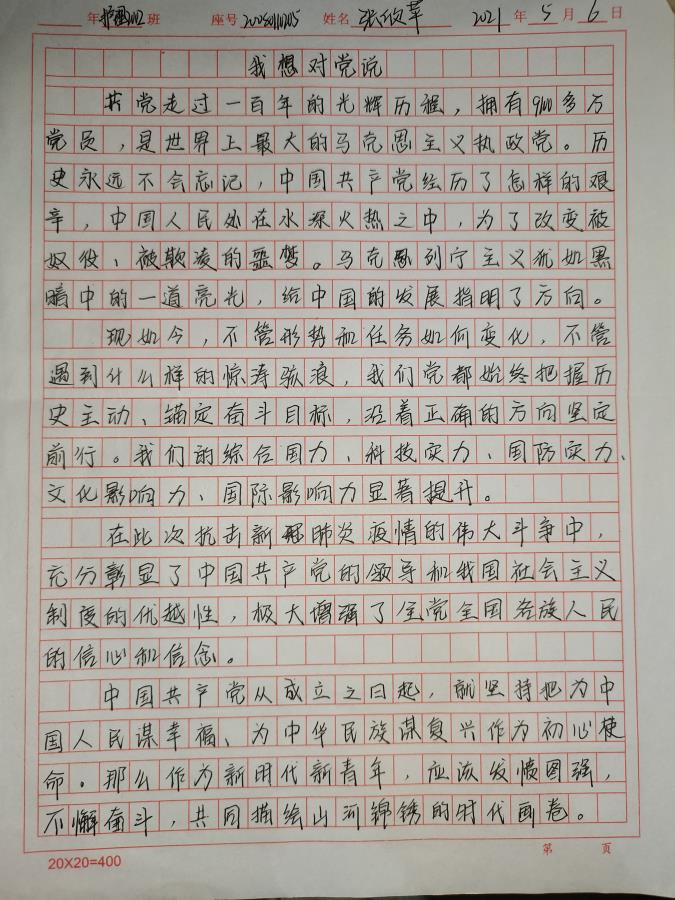 年 护理 班 座号 姓名 张欣苹 2021 年 5 月 6 日
我想对党说
共党走过一百年的光辉历程，拥有9100多万
党员，是世界上最大的马克思主义执政党。历
史永远不会忘记，中国共产党经历了怎样的艰
辛，中国人民处在水深火热之中，为了改变被
奴役、被欺凌的噩梦。马克思列宁主义犹如黑
暗中的一道亮光，给中国的发展指明了方向。
现如今，不管形势和任务如何变化，不管
遇到什么样的惊涛骇浪，我们党都始终把握历
史主动、锚定奋斗目标，沿着正确的方向坚定
前行。我们的综合国力、科技实力、国防实力、
文化影响力、国际影响力显著提升。
在此次抗击新冠肺炎疫情的伟大斗争中，
充分彰显了中国共产党的领导和我国社会主义
制度的优越性，极大增强了全党全国各族人民
的信心和信念。
中国共产党从成立之日起，就坚持把为中
国人民谋幸福、为中华民族谋复兴作为初心使
命。那么作为新时代新青年，应该发愤图强，
不懈奋斗，共同描绘山河锦锈的时代画卷。
20X20=400 第 页